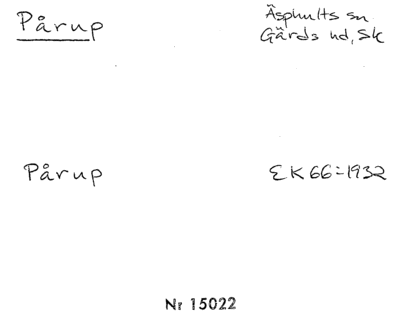 Pårup
Äsphults sn
Gärds hd, Sk
Pårup
EK66=1932
Nr 15022